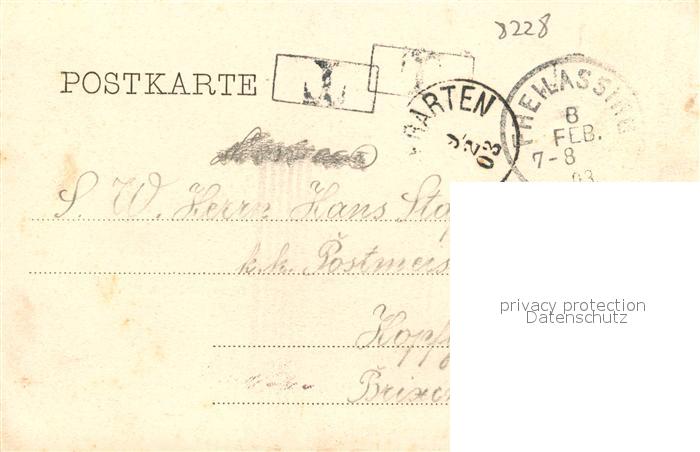 8228
POSTKARTE
T
T
GARTEN
03
FREILASSING
8
FEB.
7-8
03
S. W. Herrn Hans Sto
k.k. Postmeis
Hopfg
Brixen
privacy protection
Datenschutz